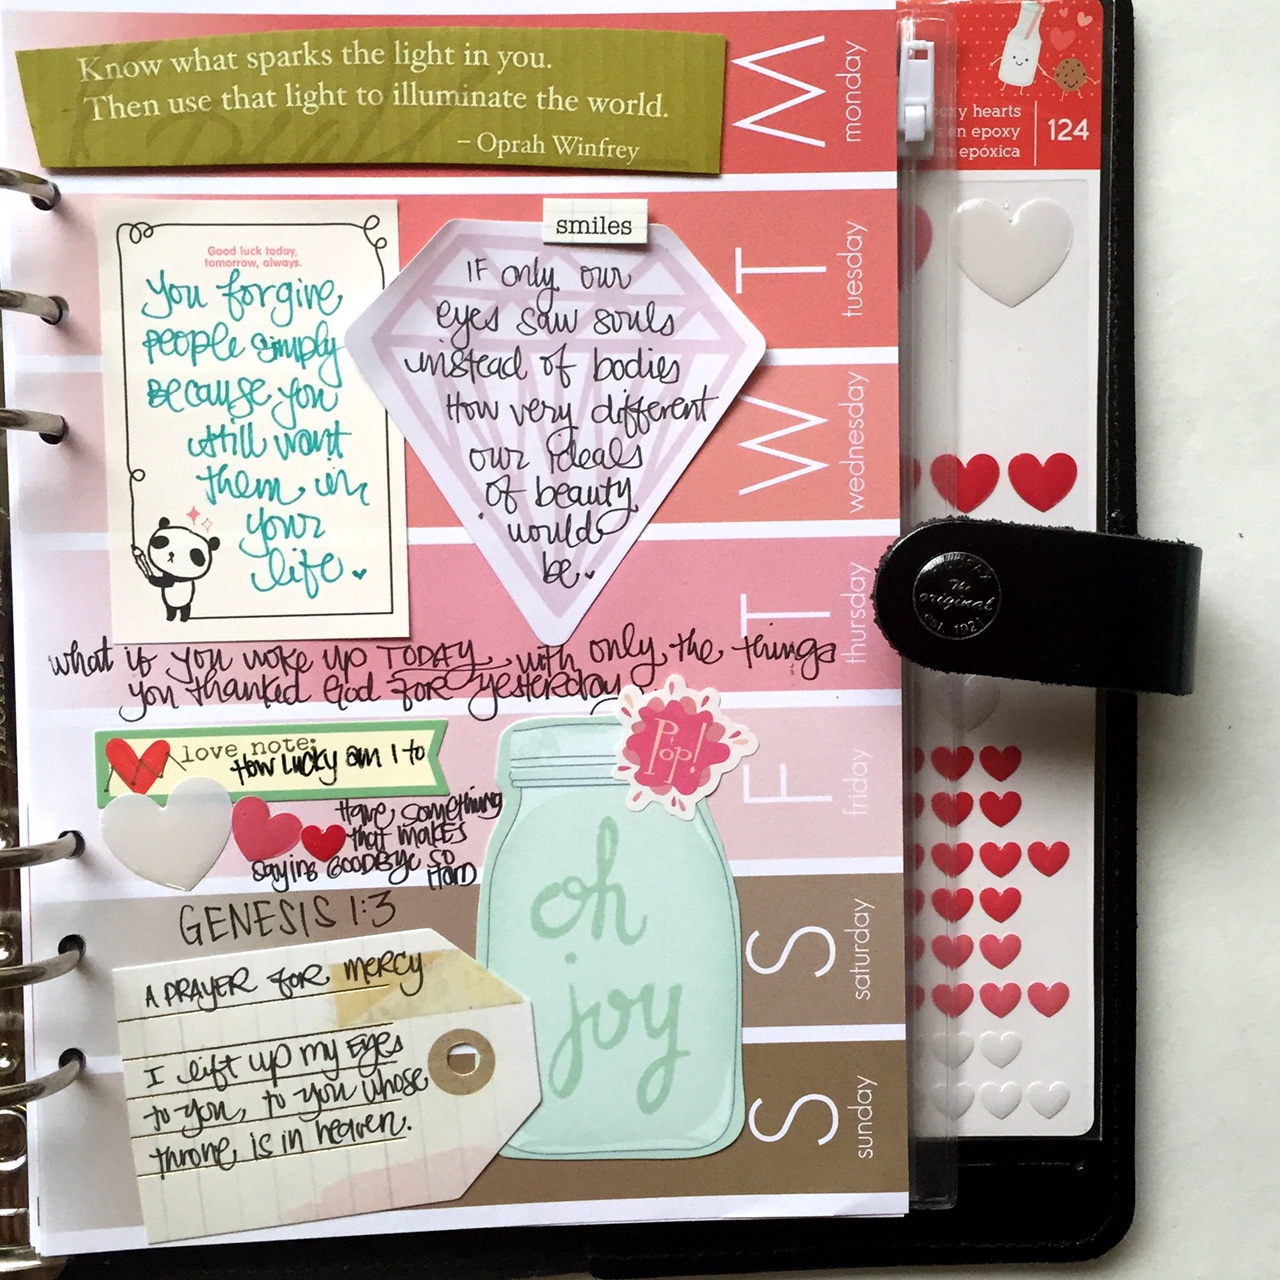 Know what sparks the light in you.
Then use that light to illuminate the world.
– Oprah Winfrey
M
monday
oxy hearts
en epoxy
na epóxica
124
Good luck today,
tomorrow, always.
You forgive
people simply
because you
still want
them in
your
life.
smiles
IF only our
eyes saw souls
instead of bodies
How very different
our ideals
of beauty
would
be.
T
tuesday
W
wednesday
T
thursday
The
original
est. 1921
what if you woke up TODAY with only the things
you thanked God for yesterday
love note:
How Lucky am I to
Have something
that makes
saying GOODBYE so
HARD
Pop!
F
friday
oh
joy
GENESIS 1:3
S
saturday
A PRAYER FOR MERCY
I lift up my Eyes
to you, to you whose
throne is in heaven.
S
sunday